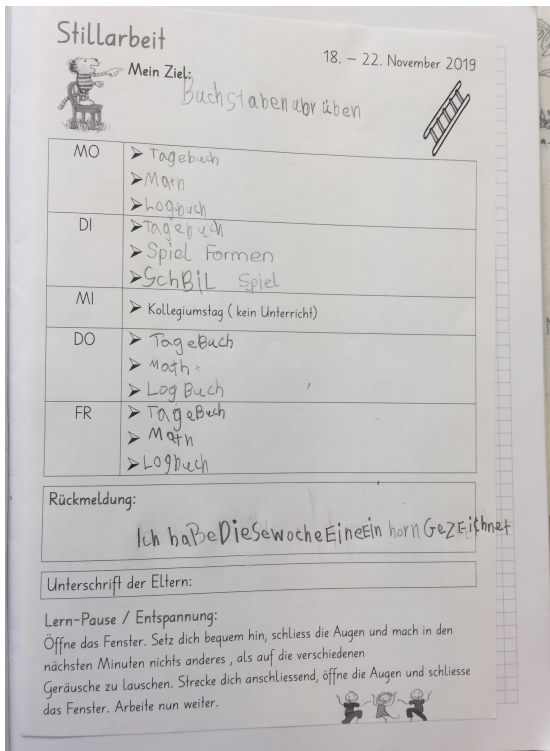 Stillarbeit
18. – 22. November 2019
Mein Ziel:
Buchstabenabr üben
MO
➤ Tagebuch
➤ Math
➤ Logbuch
DI
➤ Tagebuch
➤ Spiel Formen
➤ SchBiL Spiel
MI
➤ Kollegiumstag ( kein Unterricht)
DO
➤ TageBuch
➤ Math
➤ Log Buch
FR
➤ TageBuch
➤ Math
➤ Logbuch
Rückmeldung:
Ich haBe DieSe woche EineEin horn GeZEichnet
Unterschrift der Eltern:
Lern-Pause / Entspannung:
Öffne das Fenster. Setz dich bequem hin, schliess die Augen und mach in den
nächsten Minuten nichts anderes , als auf die verschiedenen
Geräusche zu lauschen. Strecke dich anschliessend, öffne die Augen und schliesse
das Fenster. Arbeite nun weiter.